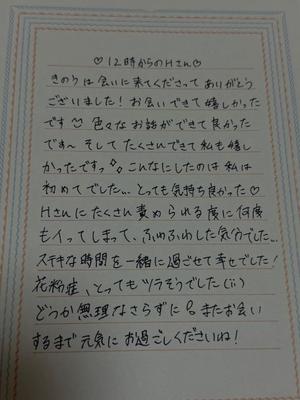 ♡12時からのHさん♡
きのうは会いに来てくださってありがとう
ございました！お会いできて嬉しかった
です 色々なお話ができて良かった
です〜 そしてたくさんできて私も嬉し
かったですっ こんなにしたのは私は
初めてでした… とっても気持ち良かった♡
Hさんにたくさん責められる度に何度
もイってしまって、ふわふわした気分でした…
ステキな時間を一緒に過ごせて幸せでした！
花粉症、とってもツラそうでした(;;)
どうか無理なさらずに またお会い
するまで元気にお過ごしくださいね！